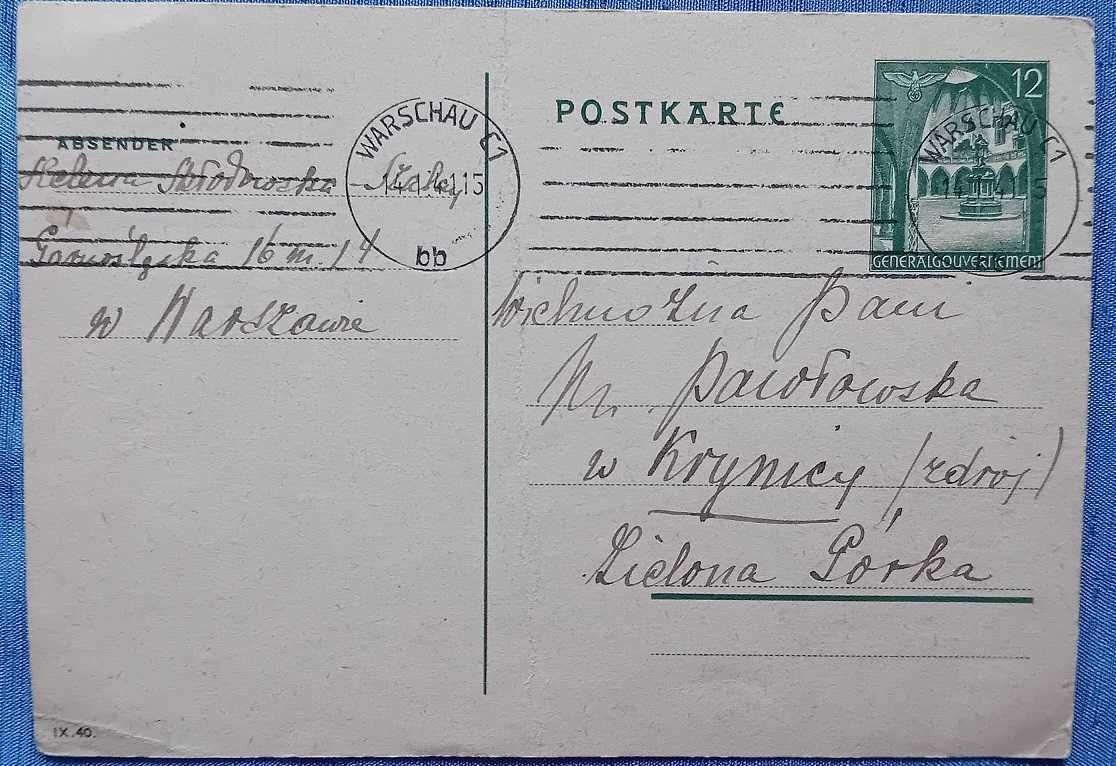 ABSENDER
Helena Skłodowska
Górnośląska 16 m. 14
w Warszawie
WARSCHAU C1
14.1.41.15
bb
POSTKARTE
12
GENERALGOUVERNEMENT
WARSCHAU C1
14.1.41.15
Wielmożna Pani
M. Pawłowska
w Krynicy (zdroj)
Zielona Górka
IX.40.